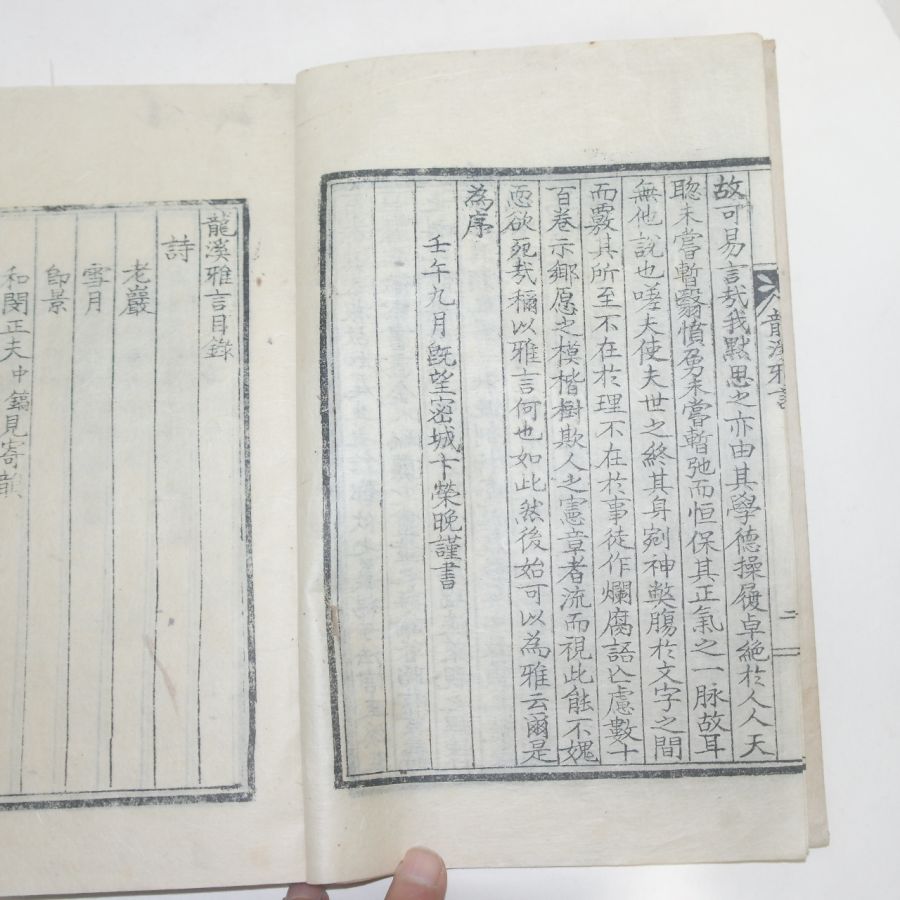 龍溪雅言
二
故可易言哉我默思之亦由其學德操履卓絶於人人天
聦未嘗暫翳憤勇未嘗暫弛而恒保其正氣之一脉故耳
無他說也嗟夫使夫世之終其身剜神獘膓於文字之間
而覈其所至不在於理不在於事徒作爛腐語亾慮數十
百卷示鄉愿之模楷樹欺人之憲章者流而視此能不媿
恧欲死哉稱以雅言何也如此然後始可以為雅云爾是
為序
壬午九月旣望密城卞榮晚謹書
龍溪雅言目錄
詩
老巖
雪月
卽景
和閔正夫中鎬見寄韻